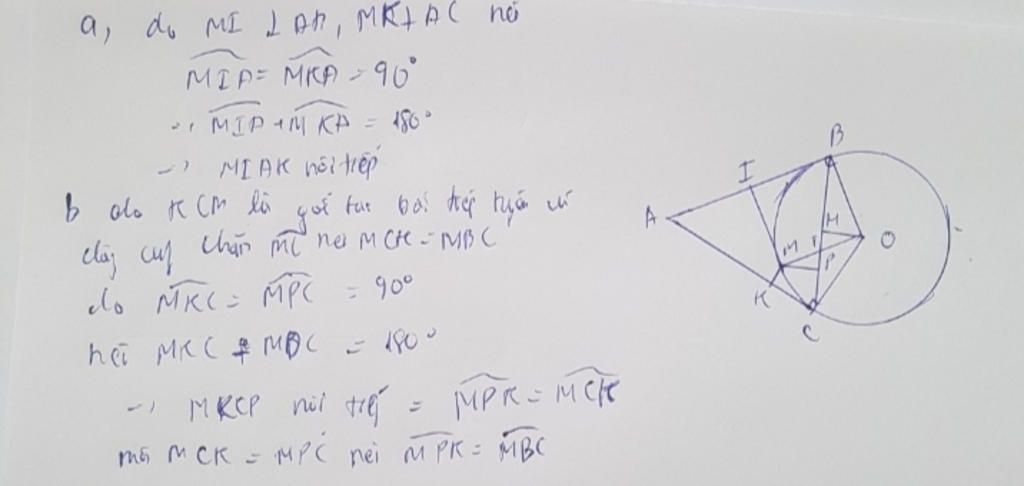 a, do MI ⊥ AB, MK ⊥ AC nên
MIA = MKA = 90°
→ MIA + MKA = 180°
→ MIAK nội tiếp
b do KCM là góc tạo bởi tiếp tuyến và
dây cung chắn MC nên MCK = MBC
do MKC = MPC = 90°
nên MKC + MPC = 180°
→ MKCP nội tiếp = MPK = MCK
mà MCK = MPC nên MPK = MBC
B
I
A
H
O
M
P
K
C